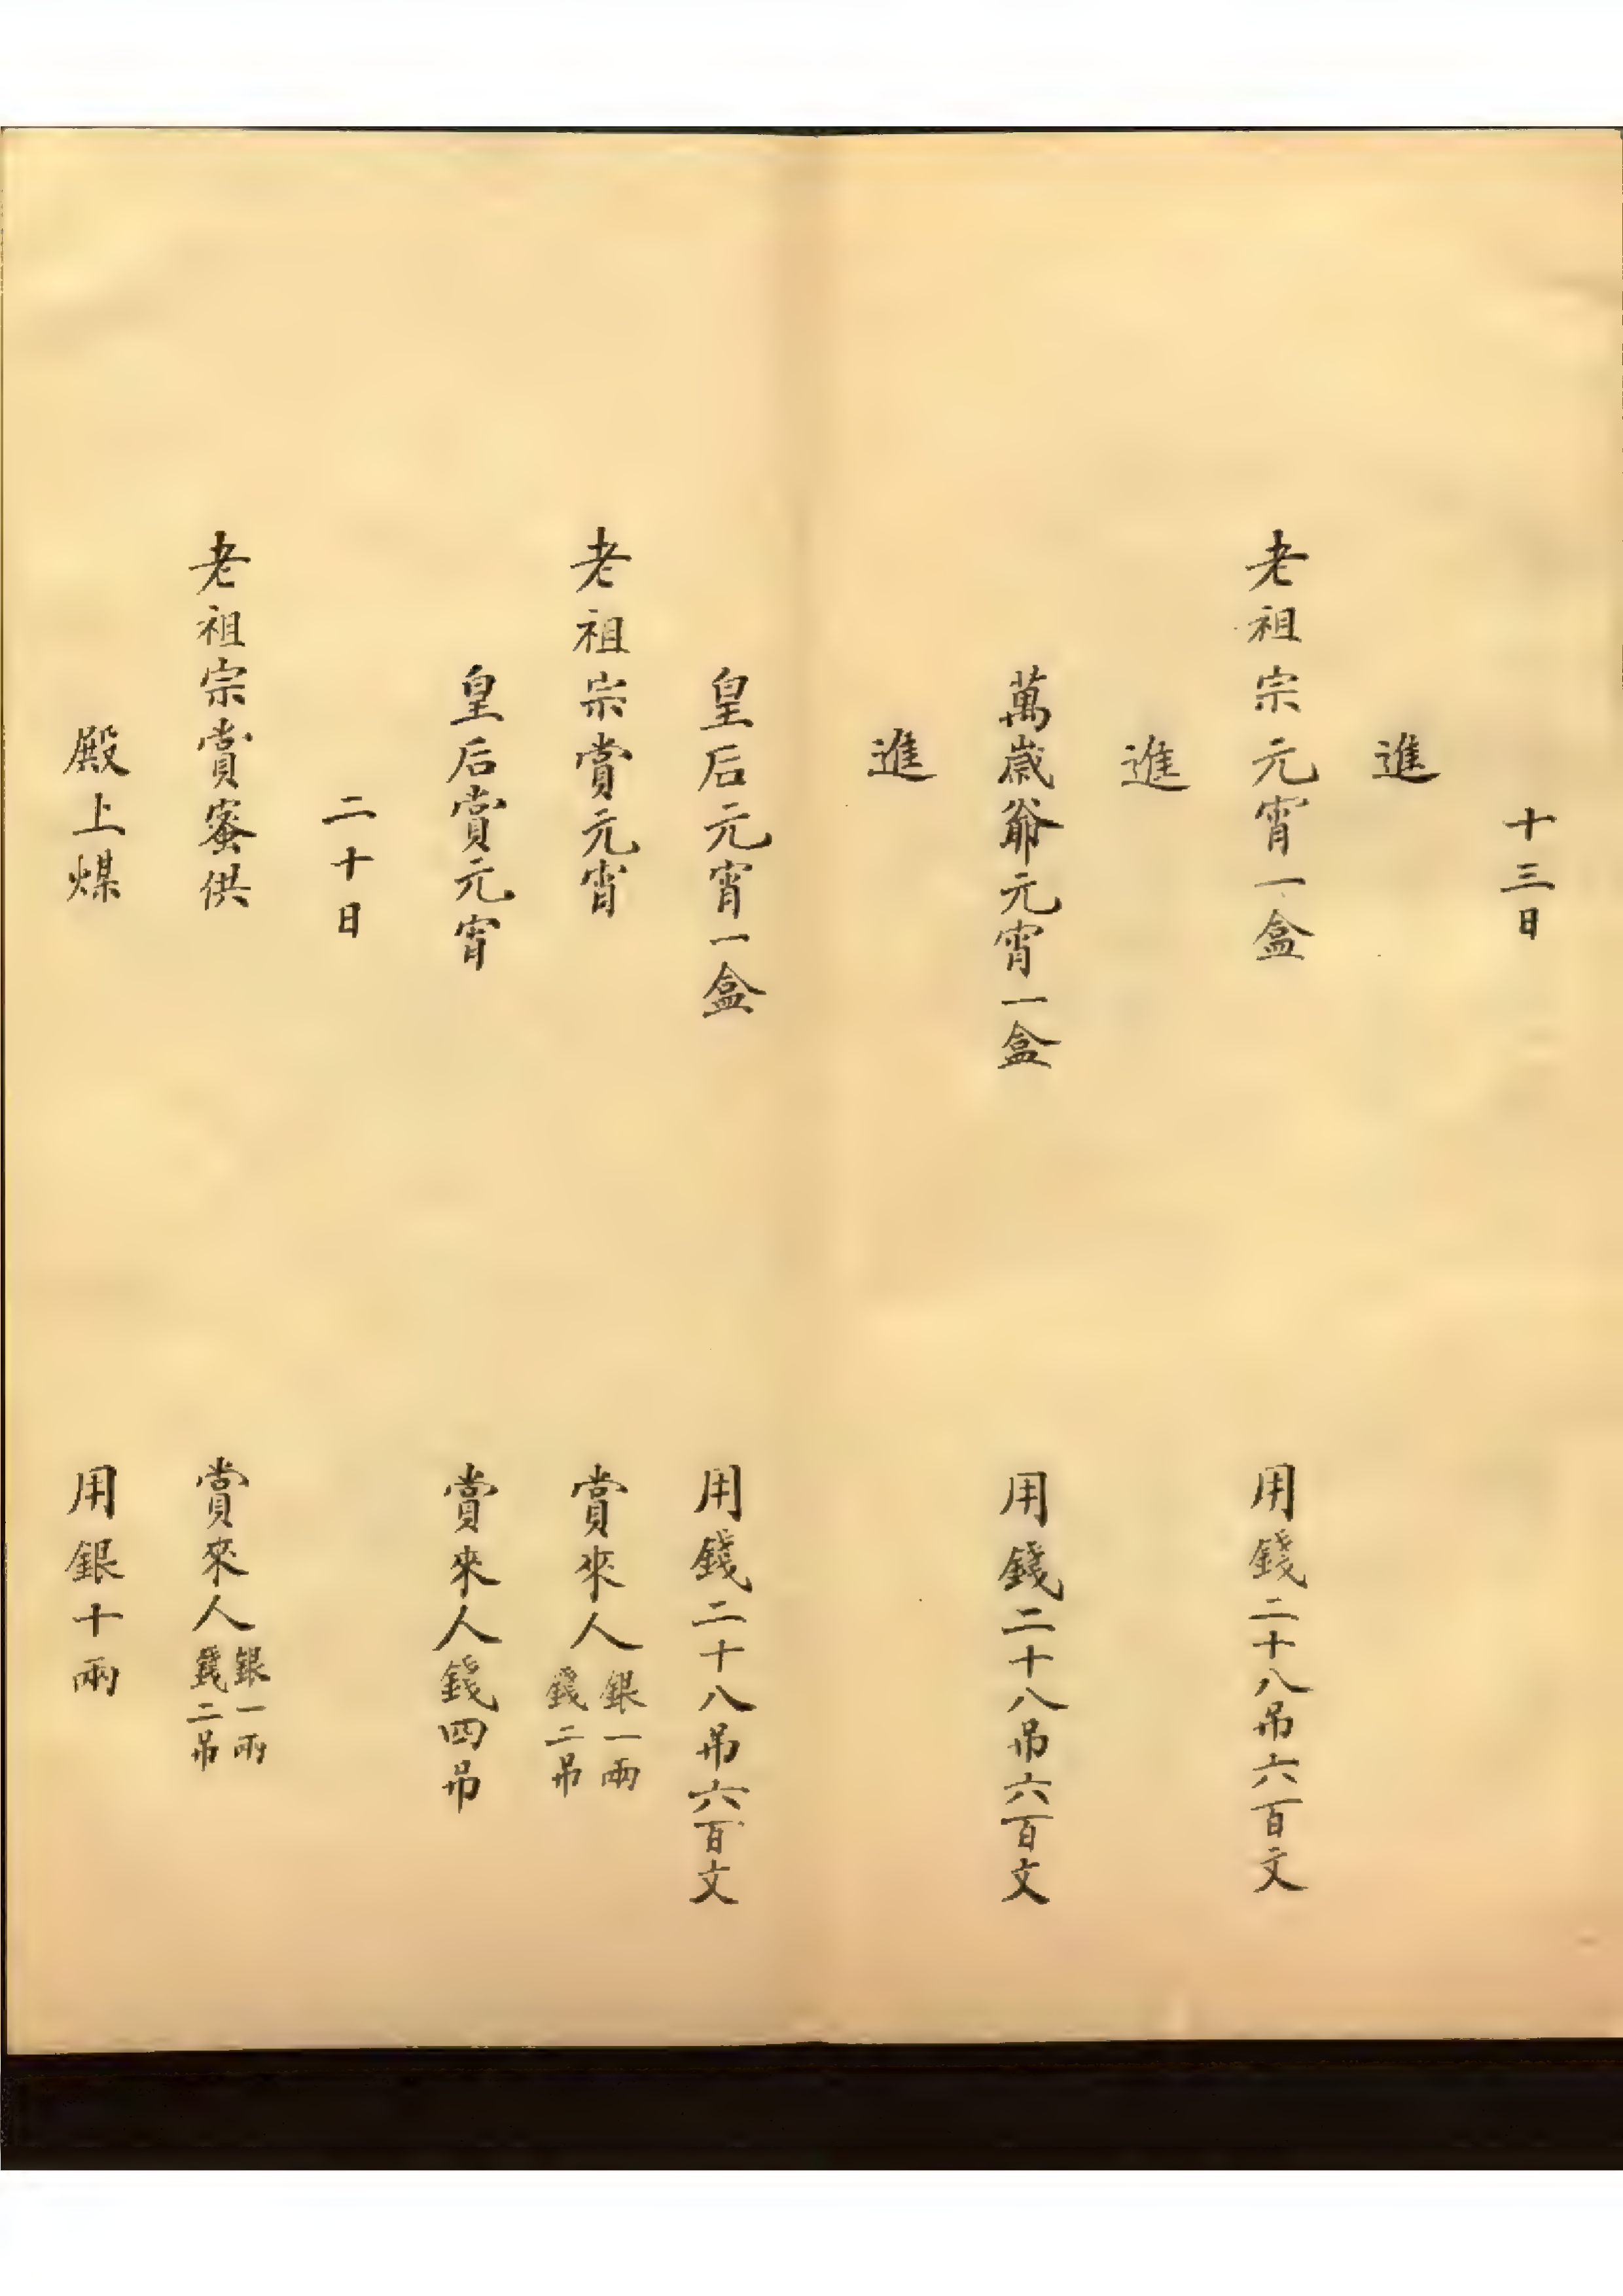 十三日
進
老祖宗元宵一盒 用錢二十八吊六百文
進
萬歲爺元宵一盒 用錢二十八吊六百文
進
皇后元宵一盒 用錢二十八吊六百文
老祖宗賞元宵 賞來人銀一兩錢二吊
皇后賞元宵 賞來人錢四吊
二十日
老祖宗賞蜜供 賞來人銀一兩錢二吊
殿上煤 用銀十兩